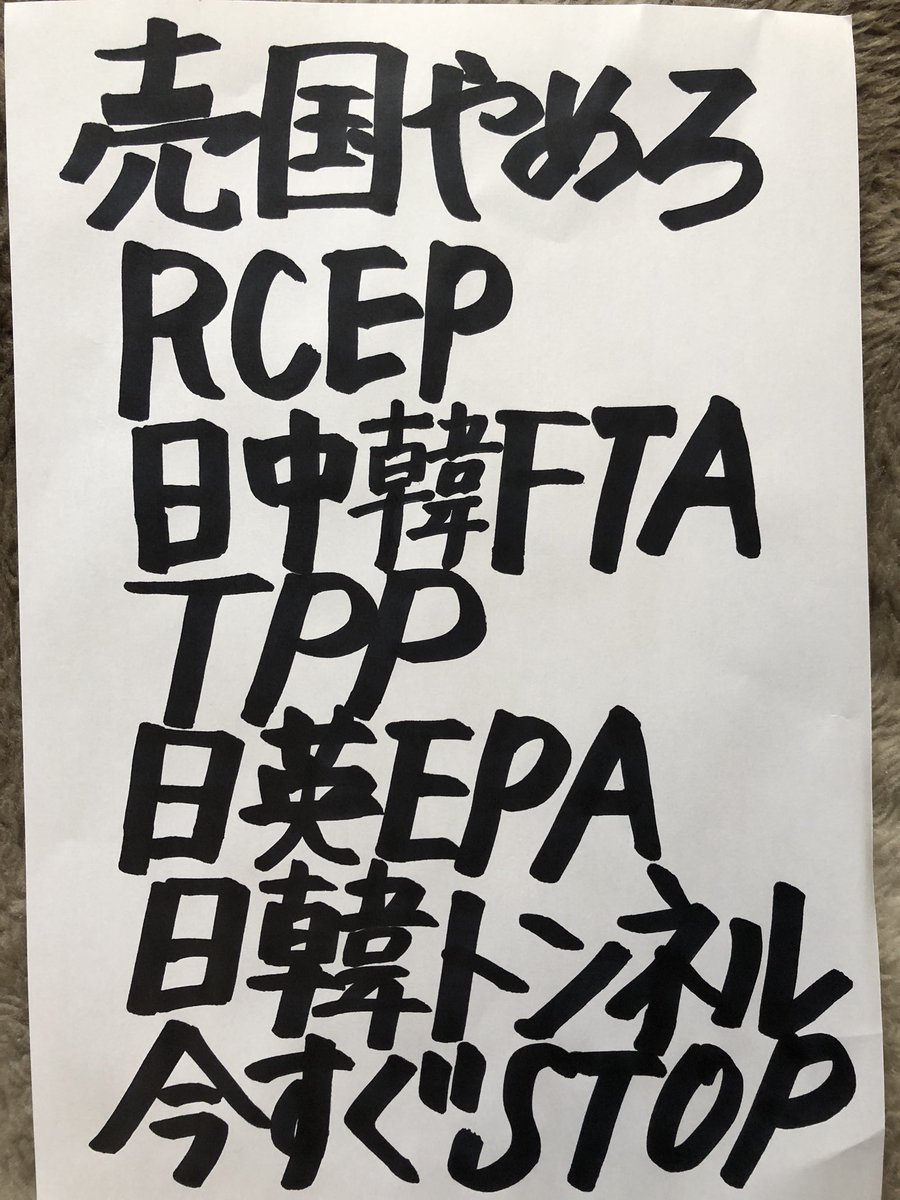 売国やめろ
RCEP
日中韓FTA
TPP
日英EPA
日韓トンネル
今すぐSTOP